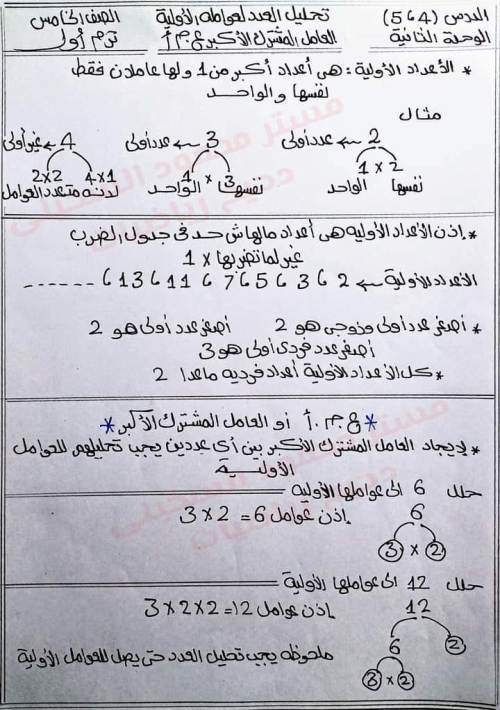 الدرس (4 ، 5) تحليل العدد لعوامله الأولية الصف الخامس
الوحدة الثانية العامل المشترك الأكبر ع.م.أ ترم أول
* الأعداد الأولية : هى أعداد أكبر من 1 ولها عاملان فقط
نفسها والواحد
مثال
2 ← عدد أولى 3 ← عدد أولى 4 ← غير أولى
1 × 2 1 × 3 2×2 4×1
نفسها الواحد نفسها الواحد لأنه متعدد العوامل
* إذن الأعداد الأولية هى أعداد مالهاش حد فى جدول الضرب
غير لما تضربها × 1
الأعداد الأولية ← 2 ، 3 ، 5 ، 7 ، 11 ، 13 ، ------
* أصغر عدد أولى وزوجى هو 2 أصغر عدد أولى هو 2
أصغر عدد فردى أولى هو 3
* كل الأعداد الأولية أعداد فرديه ماعدا 2
* ع.م.أ أو العامل المشترك الأكبر *
* لإيجاد العامل المشترك الأكبر بين أى عددين يجب تحليلهم للعوامل
الأولية
حلل 6 الى عواملها الأولية
6 إذن عوامل 6 = 2 × 3
3 × 2
حلل 12 الى عواملها الأولية
12 إذن عوامل 12 = 2 × 2 × 3
6 2
ملحوظه يجب تحليل العدد حتى يصل للعوامل الأولية
3 × 2